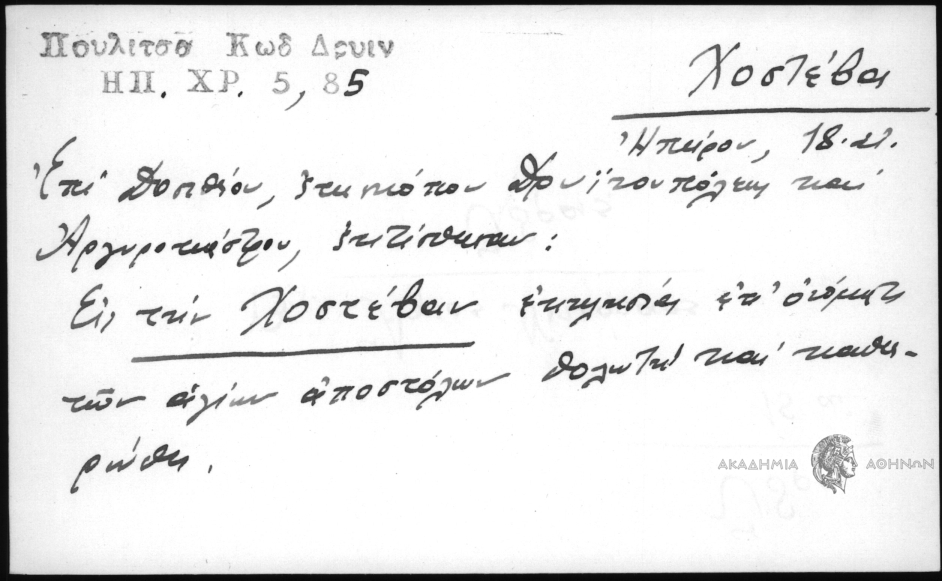 Πουλιτσα Κωδ Δρυιν
ΗΠ. ΧΡ. 5, 85
Χοστέβα
Ἠπείρου, 18 αι.
Ἐπί Δοσιθέου, ἐπισκόπου Δρυϊνουπόλεως καί
Ἀργυροκάστρου, ἐκτίσθησαν:
Εἰς τήν Χοστέβαν ἐκκλησία ἐπ' ὀνόματι
τῶν ἁγίων ἀποστόλων θολωτή καί καθιε-
ρώθη.
ΑΚΑΔΗΜΙΑ ΑΘΗΝΩΝ